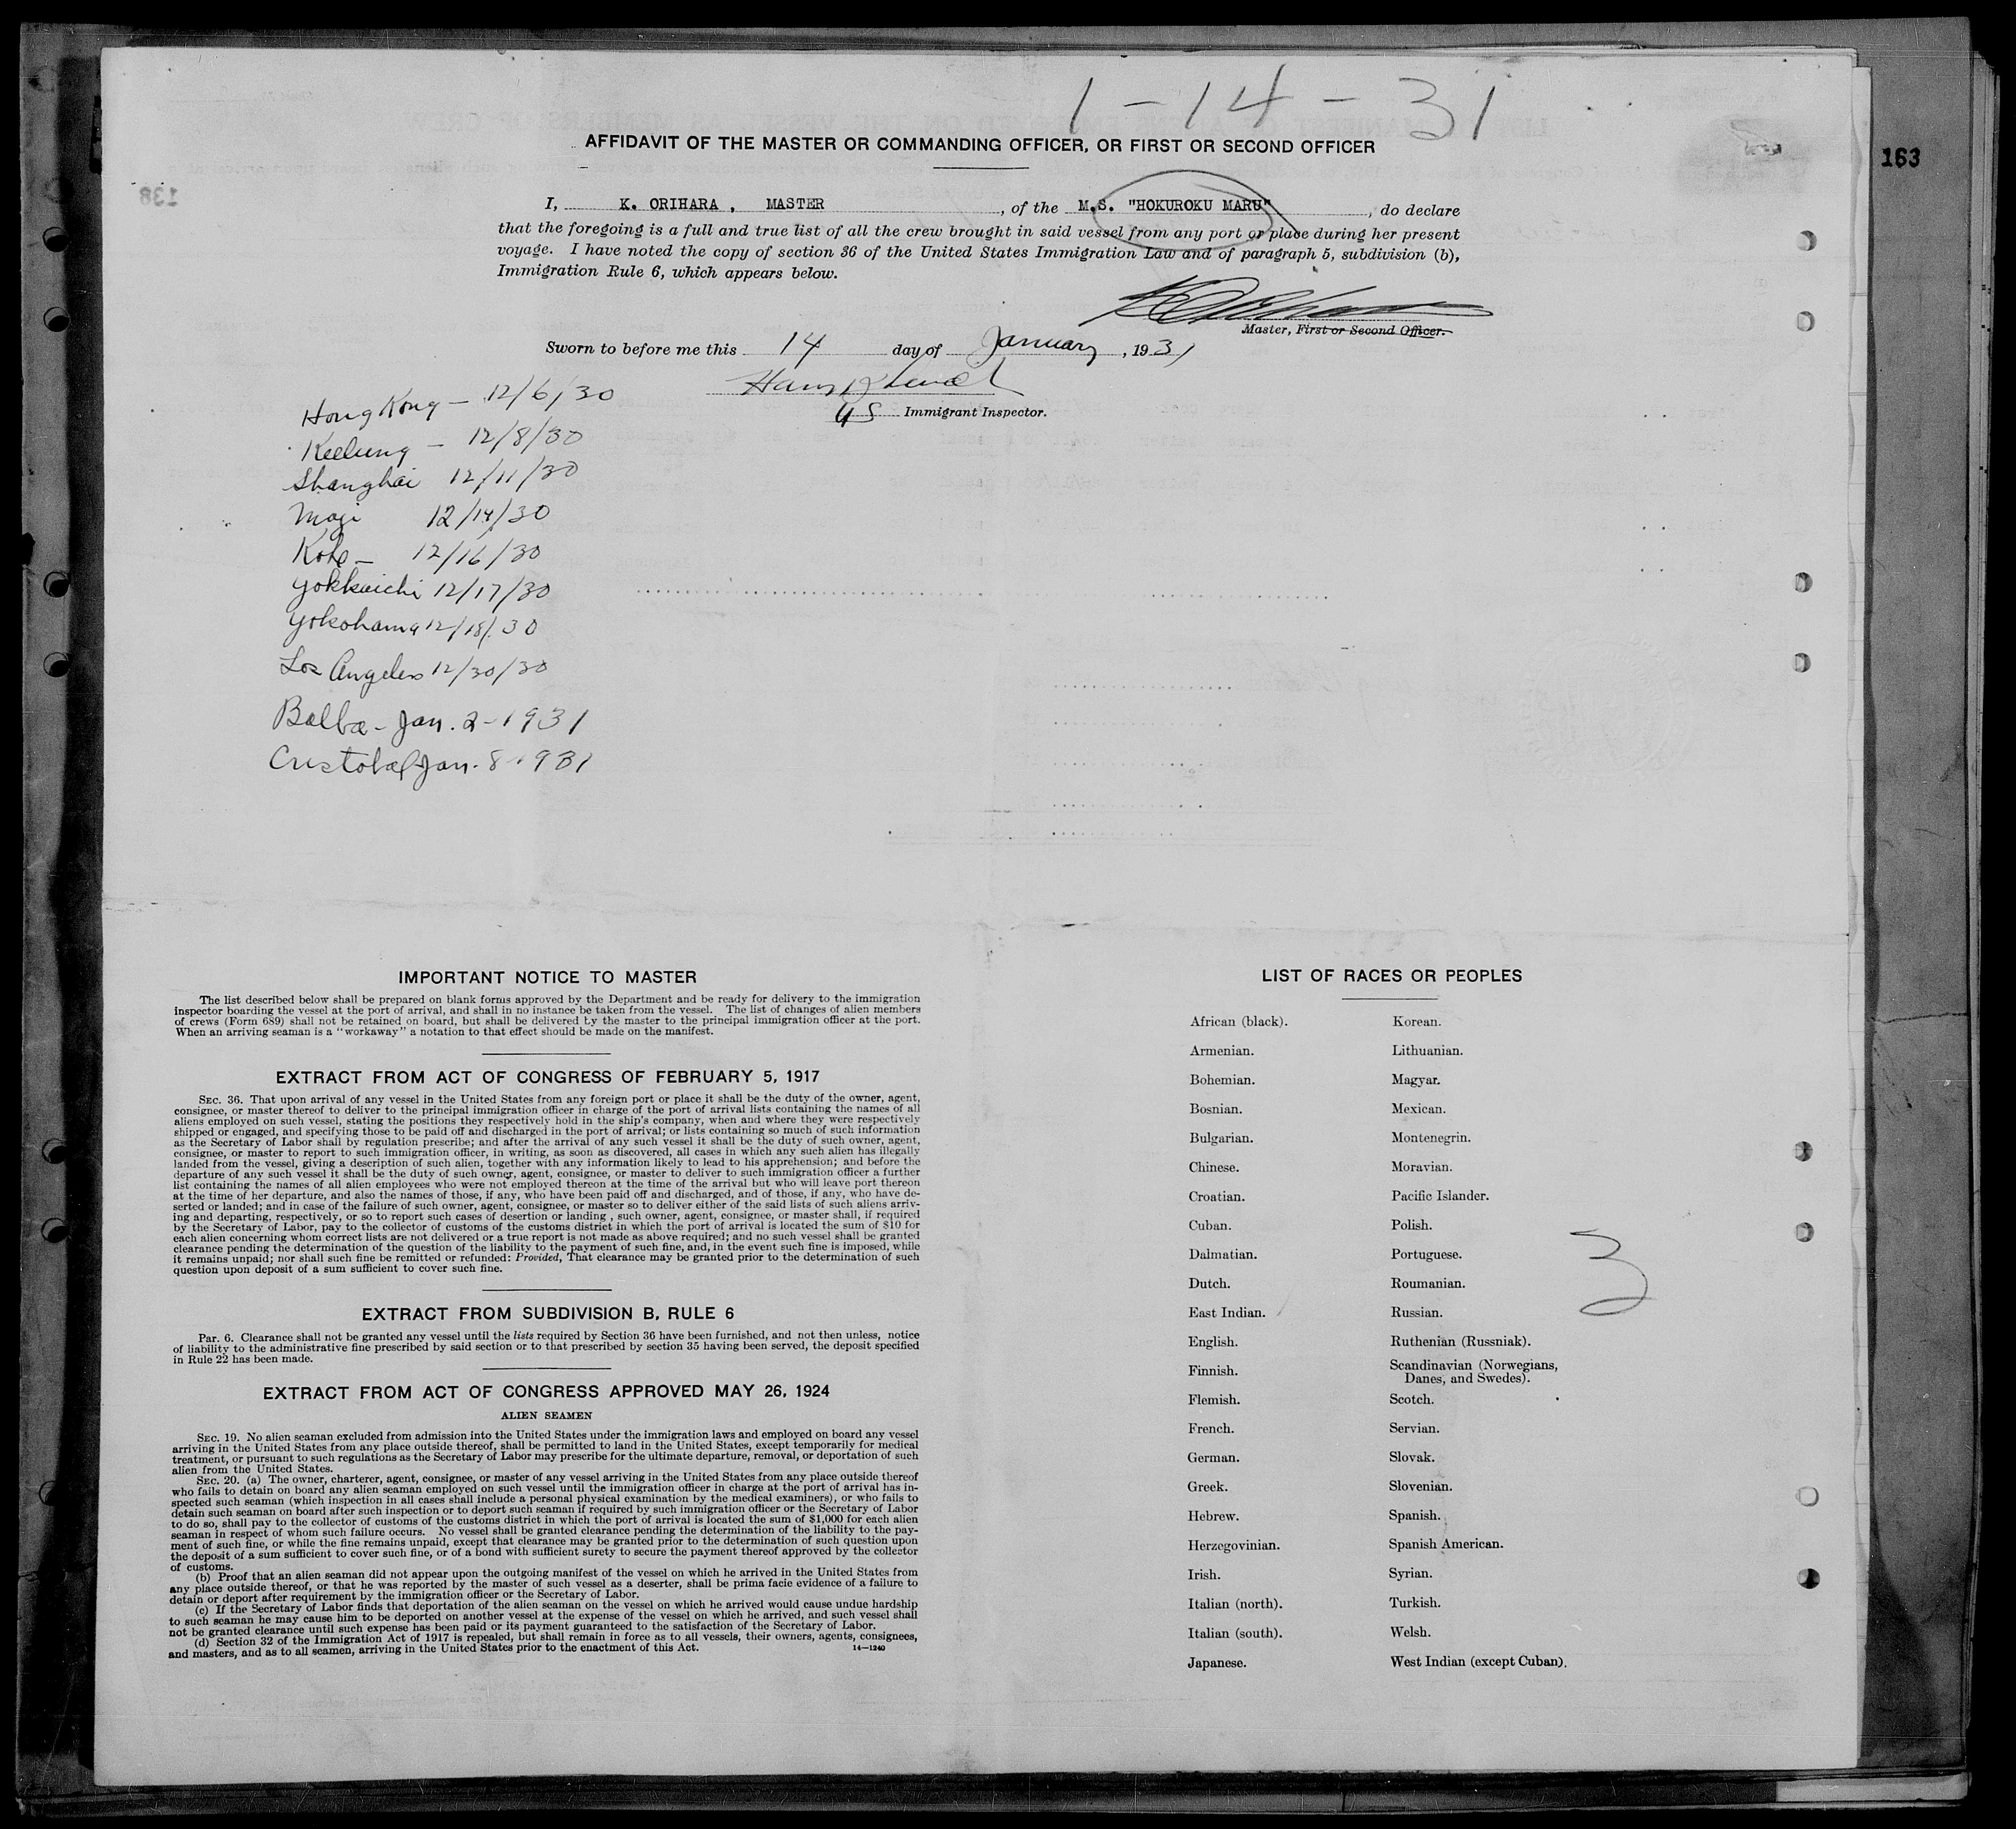 1-14-31
AFFIDAVIT OF THE MASTER OR COMMANDING OFFICER, OR FIRST OR SECOND OFFICER
163
138
I, K. ORIHARA, MASTER, of the M.S. "HOKUROKU MARU", do declare
that the foregoing is a full and true list of all the crew brought in said vessel from any port or place during her present
voyage. I have noted the copy of section 36 of the United States Immigration Law and of paragraph 5, subdivision (b),
Immigration Rule 6, which appears below.
Master, First or Second Officer.
Sworn to before me this 14 day of January, 1931
US Immigrant Inspector.
Hong Kong - 12/6/30
Keelung - 12/8/30
Shanghai 12/11/30
Moji 12/14/30
Kobe - 12/16/30
Yokkaichi 12/17/30
Yokohama 12/18/30
Los Angeles 12/30/30
Balboa - Jan. 2-1931
Cristobal Jan. 8 1931
IMPORTANT NOTICE TO MASTER
The list described below shall be prepared on blank forms approved by the Department and be ready for delivery to the immigration
inspector boarding the vessel at the port of arrival, and shall in no instance be taken from the vessel. The list of changes of alien members
of crews (Form 689) shall not be retained on board, but shall be delivered by the master to the principal immigration officer at the port.
When an arriving seaman is a "workaway" a notation to that effect should be made on the manifest.
EXTRACT FROM ACT OF CONGRESS OF FEBRUARY 5, 1917
SEC. 36. That upon arrival of any vessel in the United States from any foreign port or place it shall be the duty of the owner, agent,
consignee, or master thereof to deliver to the principal immigration officer in charge of the port of arrival lists containing the names of all
aliens employed on such vessel, stating the positions they respectively hold in the ship's company, when and where they were respectively
shipped or engaged, and specifying those to be paid off and discharged in the port of arrival; or lists containing so much of such information
as the Secretary of Labor shall by regulation prescribe; and after the arrival of any such vessel it shall be the duty of such owner, agent,
consignee, or master to report to such immigration officer, in writing, as soon as discovered, all cases in which any such alien has illegally
landed from the vessel, giving a description of such alien, together with any information likely to lead to his apprehension; and before the
departure of any such vessel it shall be the duty of such owner, agent, consignee, or master to deliver to such immigration officer a further
list containing the names of all alien employees who were not employed thereon at the time of the arrival but who will leave port thereon
at the time of her departure, and also the names of those, if any, who have been paid off and discharged, and of those, if any, who have de-
serted or landed; and in case of the failure of such owner, agent, consignee, or master so to deliver either of the said lists of such aliens arriv-
ing and departing, respectively, or so to report such cases of desertion or landing , such owner, agent, consignee, or master shall, if required
by the Secretary of Labor, pay to the collector of customs of the customs district in which the port of arrival is located the sum of $10 for
each alien concerning whom correct lists are not delivered or a true report is not made as above required; and no such vessel shall be granted
clearance pending the determination of the question of the liability to the payment of such fine, and, in the event such fine is imposed, while
it remains unpaid; nor shall such fine be remitted or refunded: Provided, That clearance may be granted prior to the determination of such
question upon deposit of a sum sufficient to cover such fine.
EXTRACT FROM SUBDIVISION B, RULE 6
Par. 6. Clearance shall not be granted any vessel until the lists required by Section 36 have been furnished, and not then unless, notice
of liability to the administrative fine prescribed by said section or to that prescribed by section 35 having been served, the deposit specified
in Rule 22 has been made.
EXTRACT FROM ACT OF CONGRESS APPROVED MAY 26, 1924
ALIEN SEAMEN
SEC. 19. No alien seaman excluded from admission into the United States under the immigration laws and employed on board any vessel
arriving in the United States from any place outside thereof, shall be permitted to land in the United States, except temporarily for medical
treatment, or pursuant to such regulations as the Secretary of Labor may prescribe for the ultimate departure, removal, or deportation of such
alien from the United States.
SEC. 20. (a) The owner, charterer, agent, consignee, or master of any vessel arriving in the United States from any place outside thereof
who fails to detain on board any alien seaman employed on such vessel until the immigration officer in charge at the port of arrival has in-
spected such seaman (which inspection in all cases shall include a personal physical examination by the medical examiners), or who fails to
detain such seaman on board after such inspection or to deport such seaman if required by such immigration officer or the Secretary of Labor
to do so, shall pay to the collector of customs of the customs district in which the port of arrival is located the sum of $1,000 for each alien
seaman in respect of whom such failure occurs. No vessel shall be granted clearance pending the determination of the liability to the pay-
ment of such fine, or while the fine remains unpaid, except that clearance may be granted prior to the determination of such question upon
the deposit of a sum sufficient to cover such fine, or of a bond with sufficient surety to secure the payment thereof approved by the collector
of customs.
(b) Proof that an alien seaman did not appear upon the outgoing manifest of the vessel on which he arrived in the United States from
any place outside thereof, or that he was reported by the master of such vessel as a deserter, shall be prima facie evidence of a failure to
detain or deport after requirement by the immigration officer or the Secretary of Labor.
(c) If the Secretary of Labor finds that deportation of the alien seaman on the vessel on which he arrived would cause undue hardship
to such seaman he may cause him to be deported on another vessel at the expense of the vessel on which he arrived, and such vessel shall
not be granted clearance until such expense has been paid or its payment guaranteed to the satisfaction of the Secretary of Labor.
(d) Section 32 of the Immigration Act of 1917 is repealed, but shall remain in force as to all vessels, their owners, agents, consignees,
and masters, and as to all seamen, arriving in the United States prior to the enactment of this Act. 14—1240
LIST OF RACES OR PEOPLES
African (black).
Armenian.
Bohemian.
Bosnian.
Bulgarian.
Chinese.
Croatian.
Cuban.
Dalmatian.
Dutch.
East Indian.
English.
Finnish.
Flemish.
French.
German.
Greek.
Hebrew.
Herzegovinian.
Irish.
Italian (north).
Italian (south).
Japanese.
Korean.
Lithuanian.
Magyar.
Mexican.
Montenegrin.
Moravian.
Pacific Islander.
Polish.
Portuguese.
Roumanian.
Russian.
Ruthenian (Russniak).
Scandinavian (Norwegians,
Danes, and Swedes).
Scotch.
Servian.
Slovak.
Slovenian.
Spanish.
Spanish American.
Syrian.
Turkish.
Welsh.
West Indian (except Cuban).
3